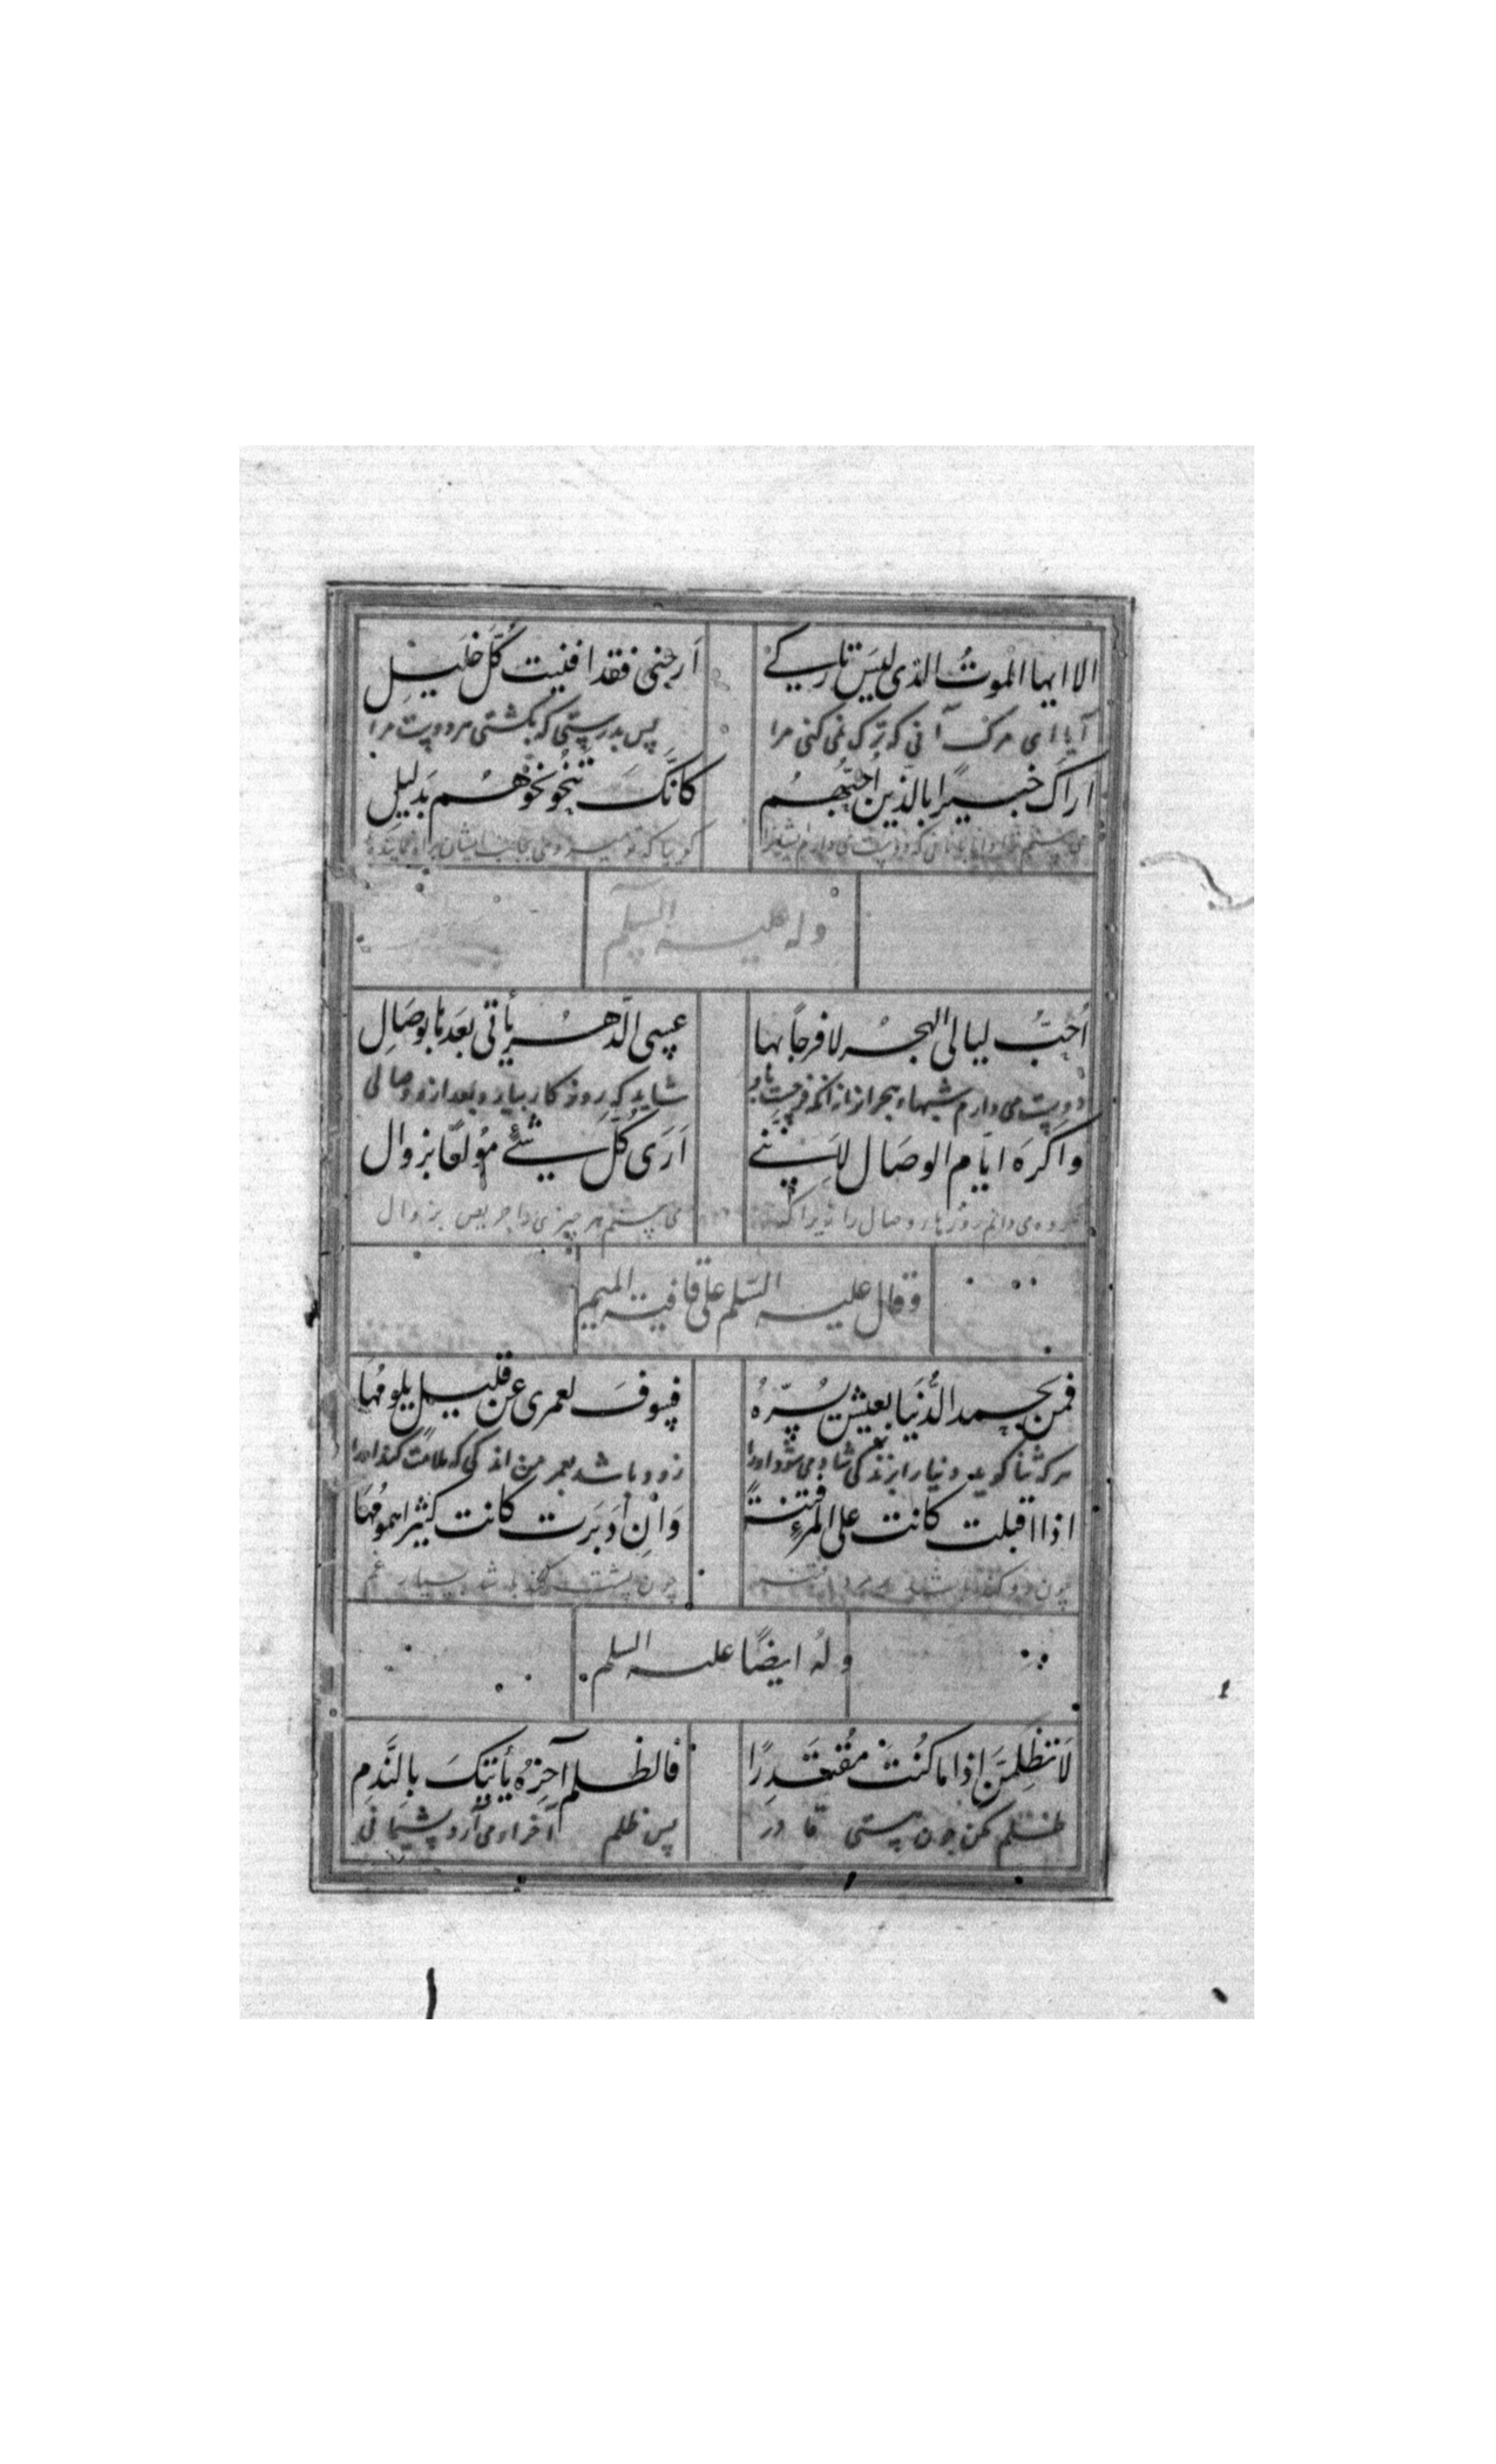 الا ايها الموتُ الذى ليسَ تاركے ارحنى فقد افنيت كُلَّ خليلِ
آیا ای مرک آنی که ترک نمی کنی مرا پس بدرستی که بکشتی مر دوست مرا
اراكَ خبيرًا بالذين اُحبُّهُمُ كانَّكَ تنحُو نحوَهُم بدَليلِ
گوییا که تو میروی بجانب ایشان
وله عليه السلم
اُحبُّ ليالى الهجرُ لا فرحًا بها عسى الدَّهرُ يأتى بعَدها بوصَالِ
دوست می دارم شبهاء هجر از نه انکه فرحست شاید که روزکار بیارد بعد ازو وصالی
واكرَهُ ايَّام الوصَال لانَّنے اَرَى كُلَّ شئٍ مُولعًا بزوال
می دانم روزهاء وصال را زیرا که می بینم هر چیزی را حریص بزوال
وقال عليه السّلم على قافية الميم
فمن يحمد الدُّنيَا بعيش يسُرّهُ فسوفَ لعمرى عن قليل يلومُهَا
هر که ثنا کوید دنیا را بزندکی شاد می شود اورا زود باشد بعمر من اندکی که ملامت کند اورا
اذا اقبلت كانت على المرءِ فتنةً وَاِنْ اَدبَرت كانت كثيرًا هُمومُهَا
چون رو کند باشد بر مرد فتنه چون پشت کند باشد بسیار غم
وله ايضًا عليه السلم
لَا تظلِمَنَّ اِذا ما كُنتَ مُقتَدِرًا فالظلم آخِرُهُ يأتيكَ بالنَّدمِ
ظلم مکن چون هستی قادر پس ظلم آخر او می آرد پشیمانی